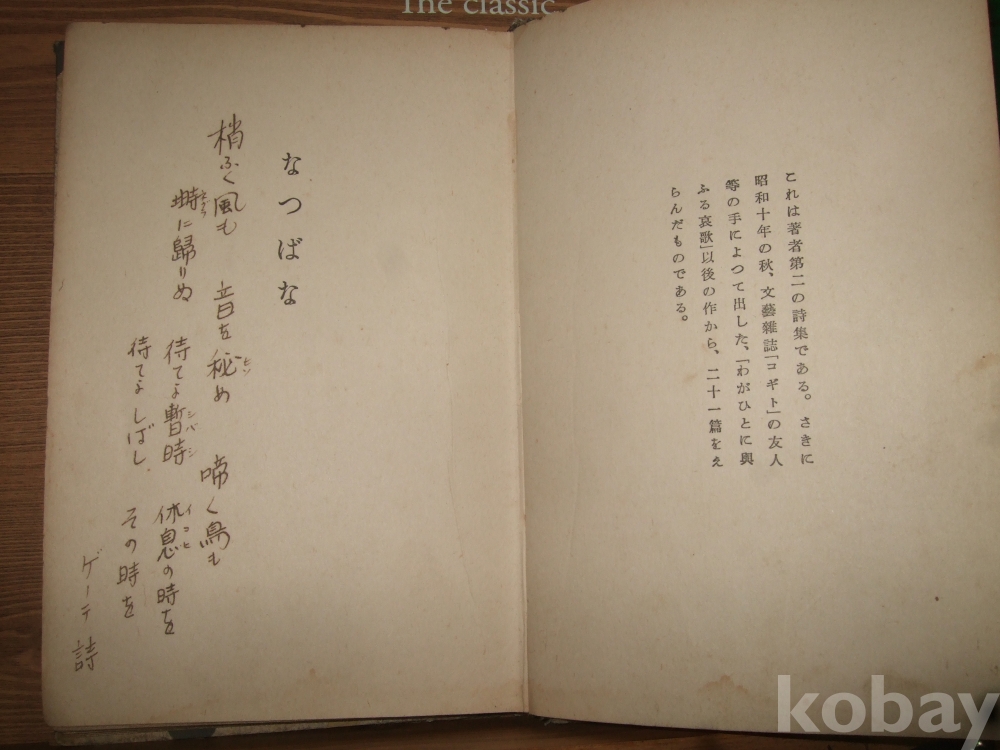 The classic
これは著者第二の詩集である。さきに
昭和十年の秋、文藝雜誌「コギト」の友人
等の手によつて出した、「わがひとに與
ふる哀歌」以後の作から、二十一篇をえ
らんだものである。
なつばな
梢ふく風も 音を秘め 啼く鳥も
塒に歸りぬ 待てよ暫時 休息の時を
待てよしばし、その時を
ゲーテ 詩
kobay